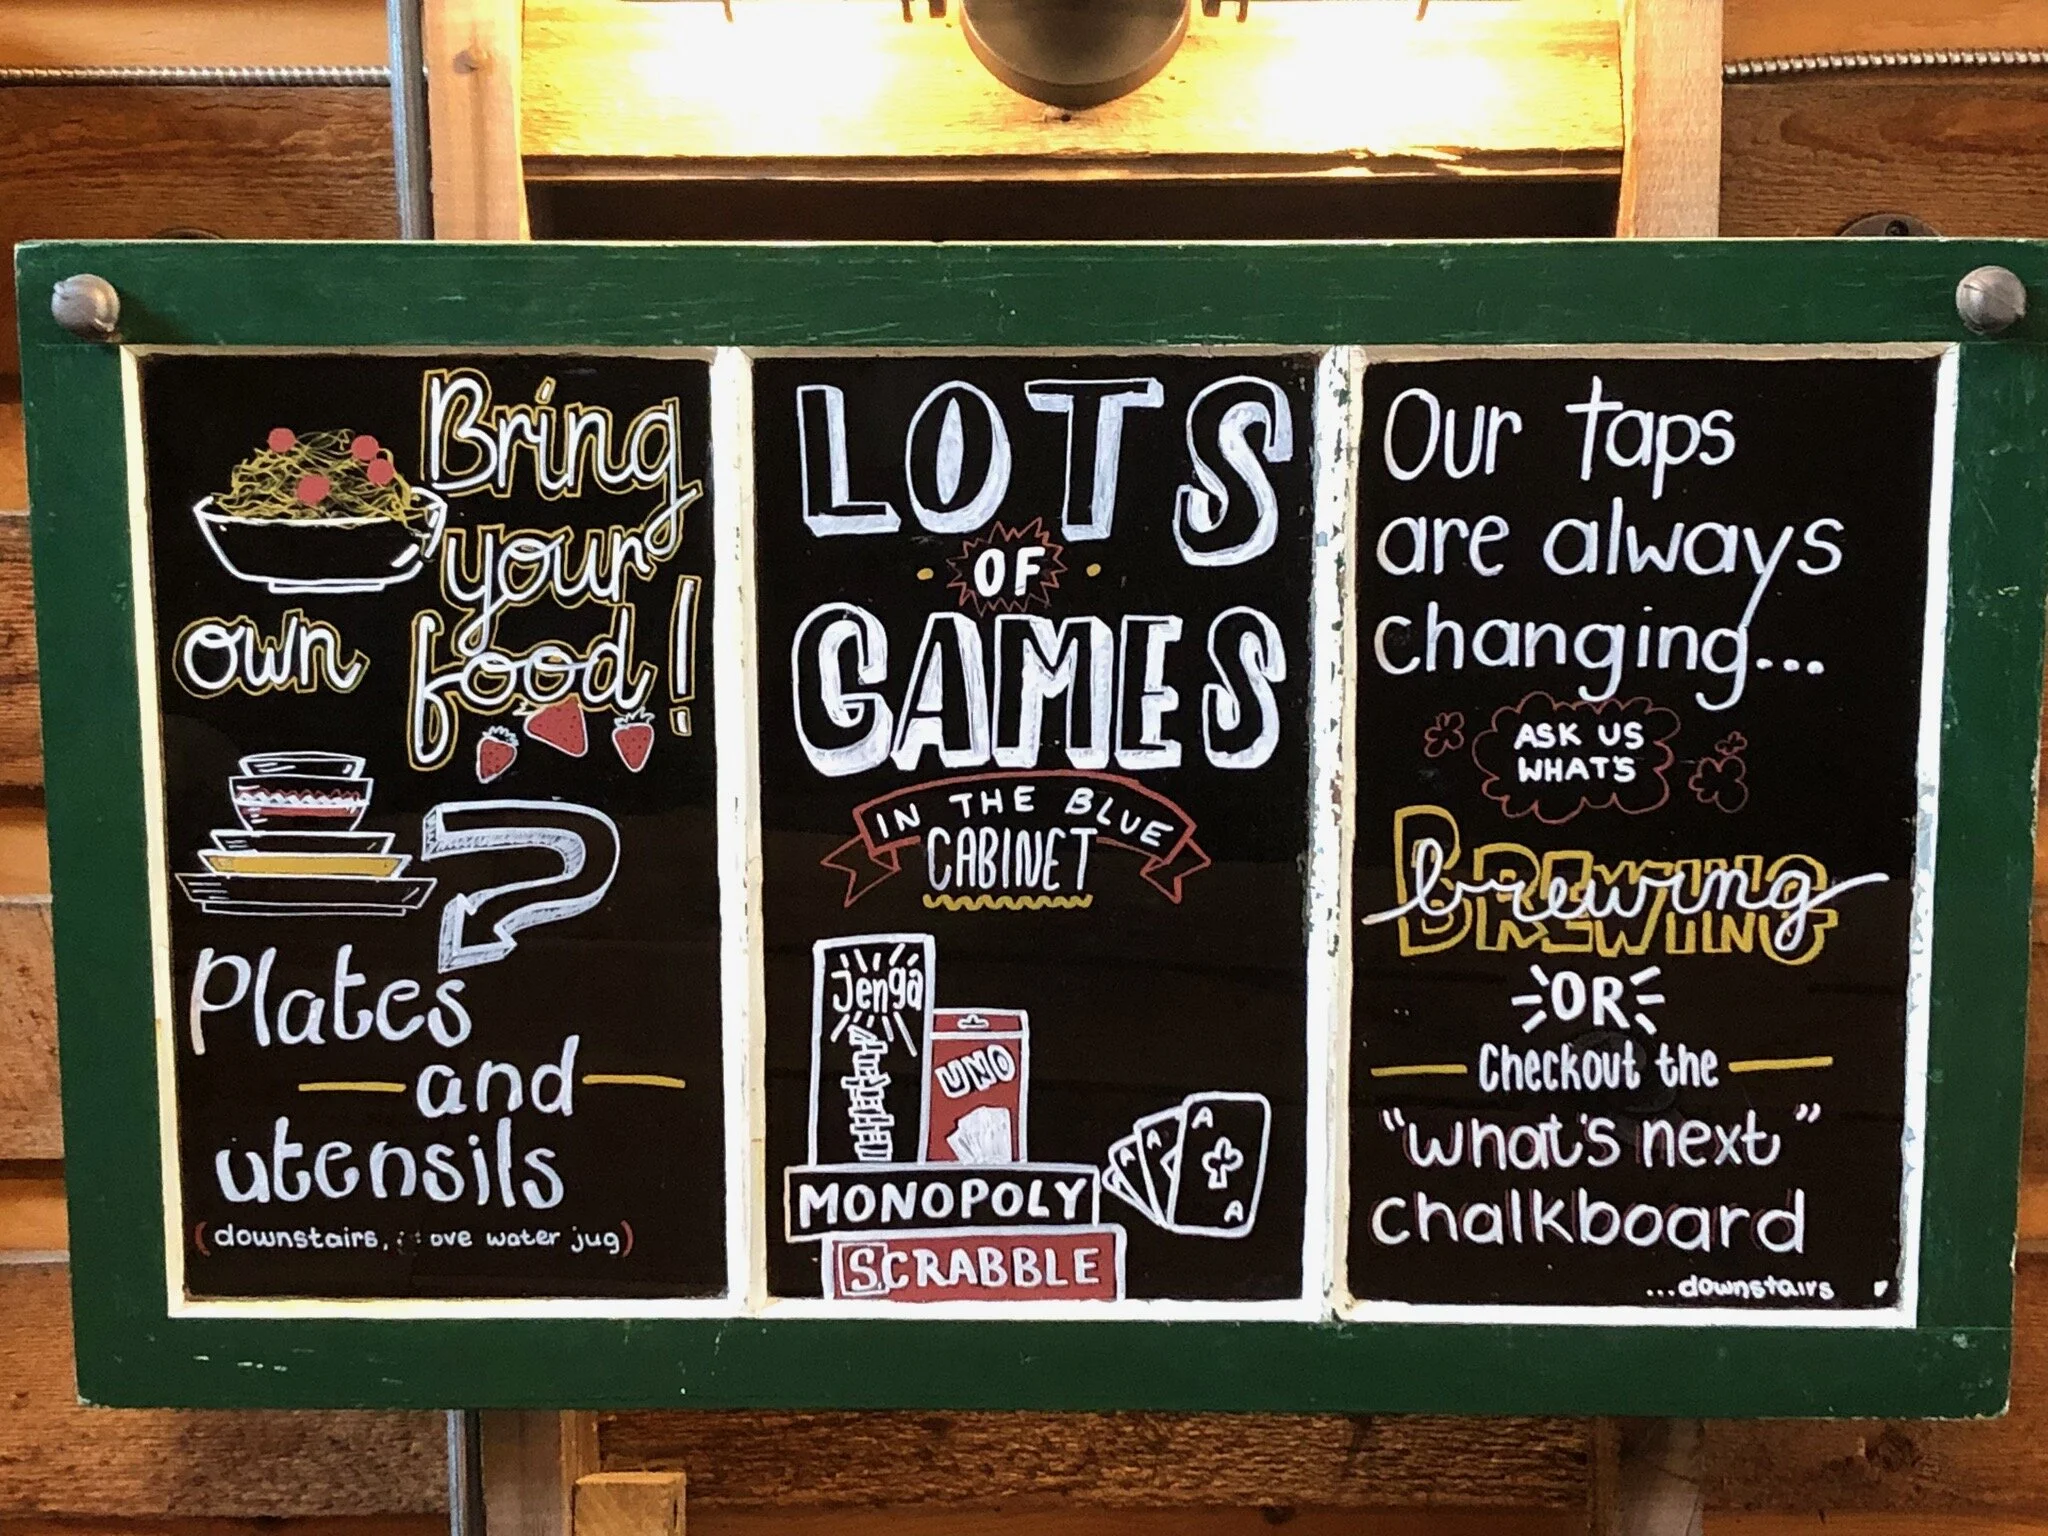 Bring
your
own food!
Plates
and
utensils
(downstairs, ove water jug)
LOTS
OF
GAMES
IN THE BLUE
CABINET
Jenga
UNO
MONOPOLY
SCRABBLE
A A A
A
Our taps
are always
changing...
ASK US
WHAT'S
BREWING
brewing
OR
Checkout the
"what's next"
chalkboard
...downstairs